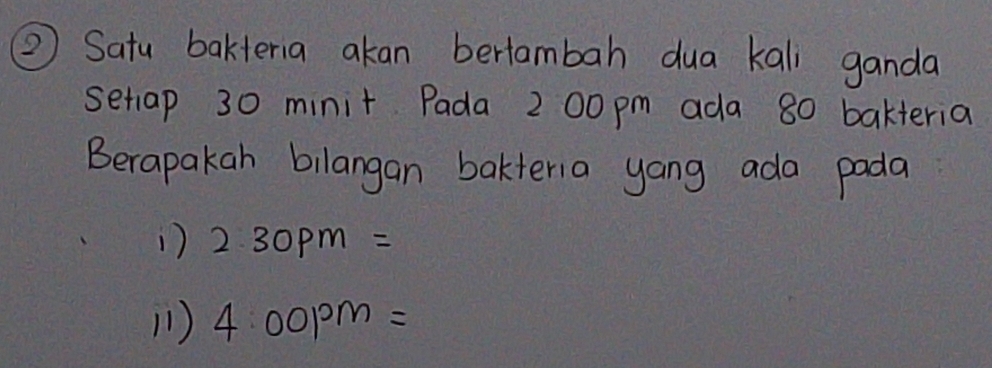 ② Satu bakteria akan bertambah dua kali ganda
setiap 30 minit. Pada 2.00pm ada 80 bakteria
Berapakah bilangan bakteria yang ada pada :
i) 2.30pm =
ii) 4:00pm =